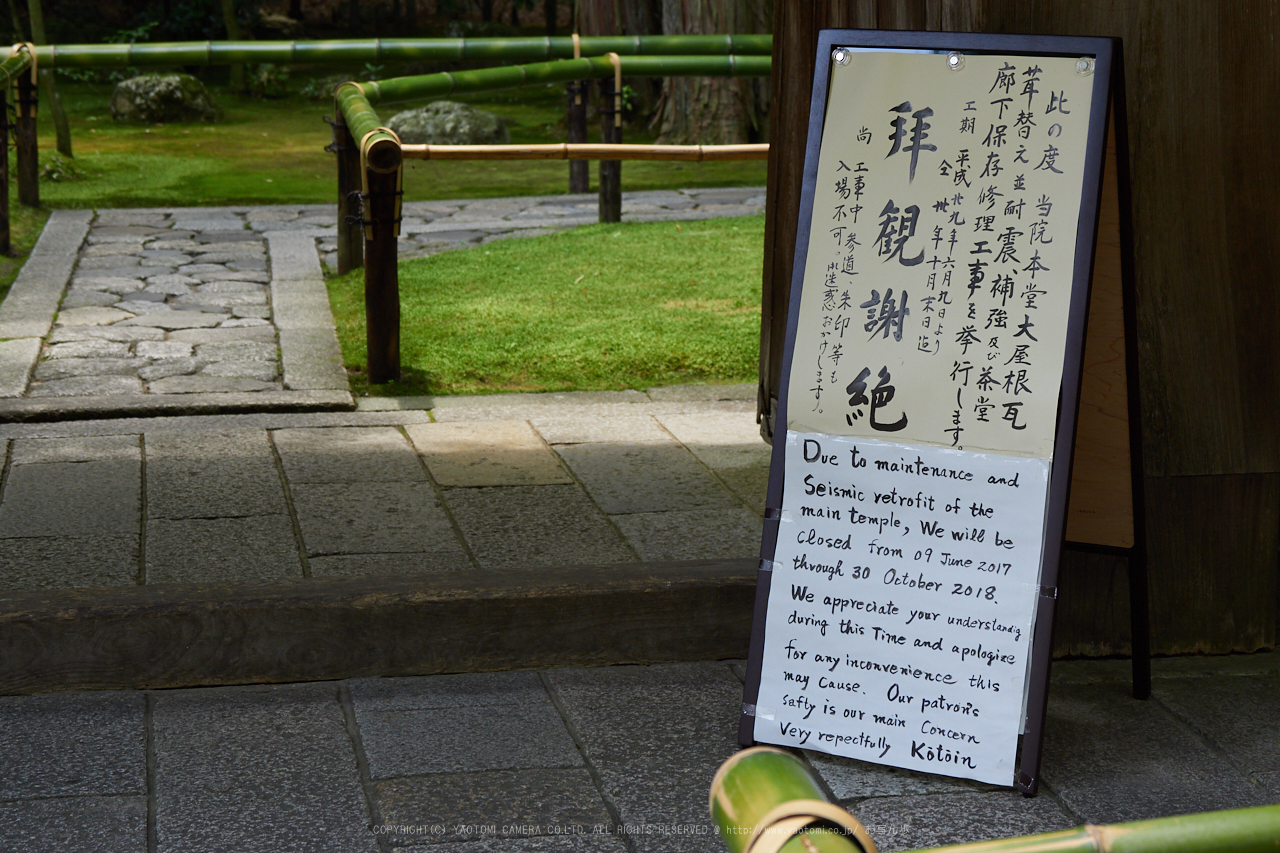 此の度 当院本堂大屋根瓦
葺替え並耐震、補強及び茶堂
廊下保存修理工事を挙行します。
工期 平成廿九年六月九日より
仝 卅年十月末日迄
拝観謝絶
尚 工事中参道、朱印等も
入場不可。御迷惑おかけします。
Due to maintenance and
Seismic retrofit of the
main temple, We will be
closed from 09 June 2017
through 30 October 2018.
We appreciate your understandig
during this Time and apologize
for any inconvenience this
may Cause. Our patron's
safty is our main Concern
Very repectfully Kōtōin
COPYRIGHT(C) YAOTOMI CAMERA CO.LTD. ALL RIGHTS RESERVED @ http://www.yaotomi.co.jp/ お写ん歩